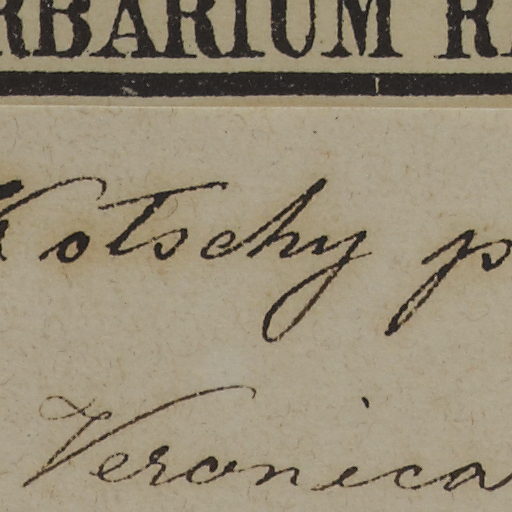 RBARIUM R
Kotschy p
Veronica